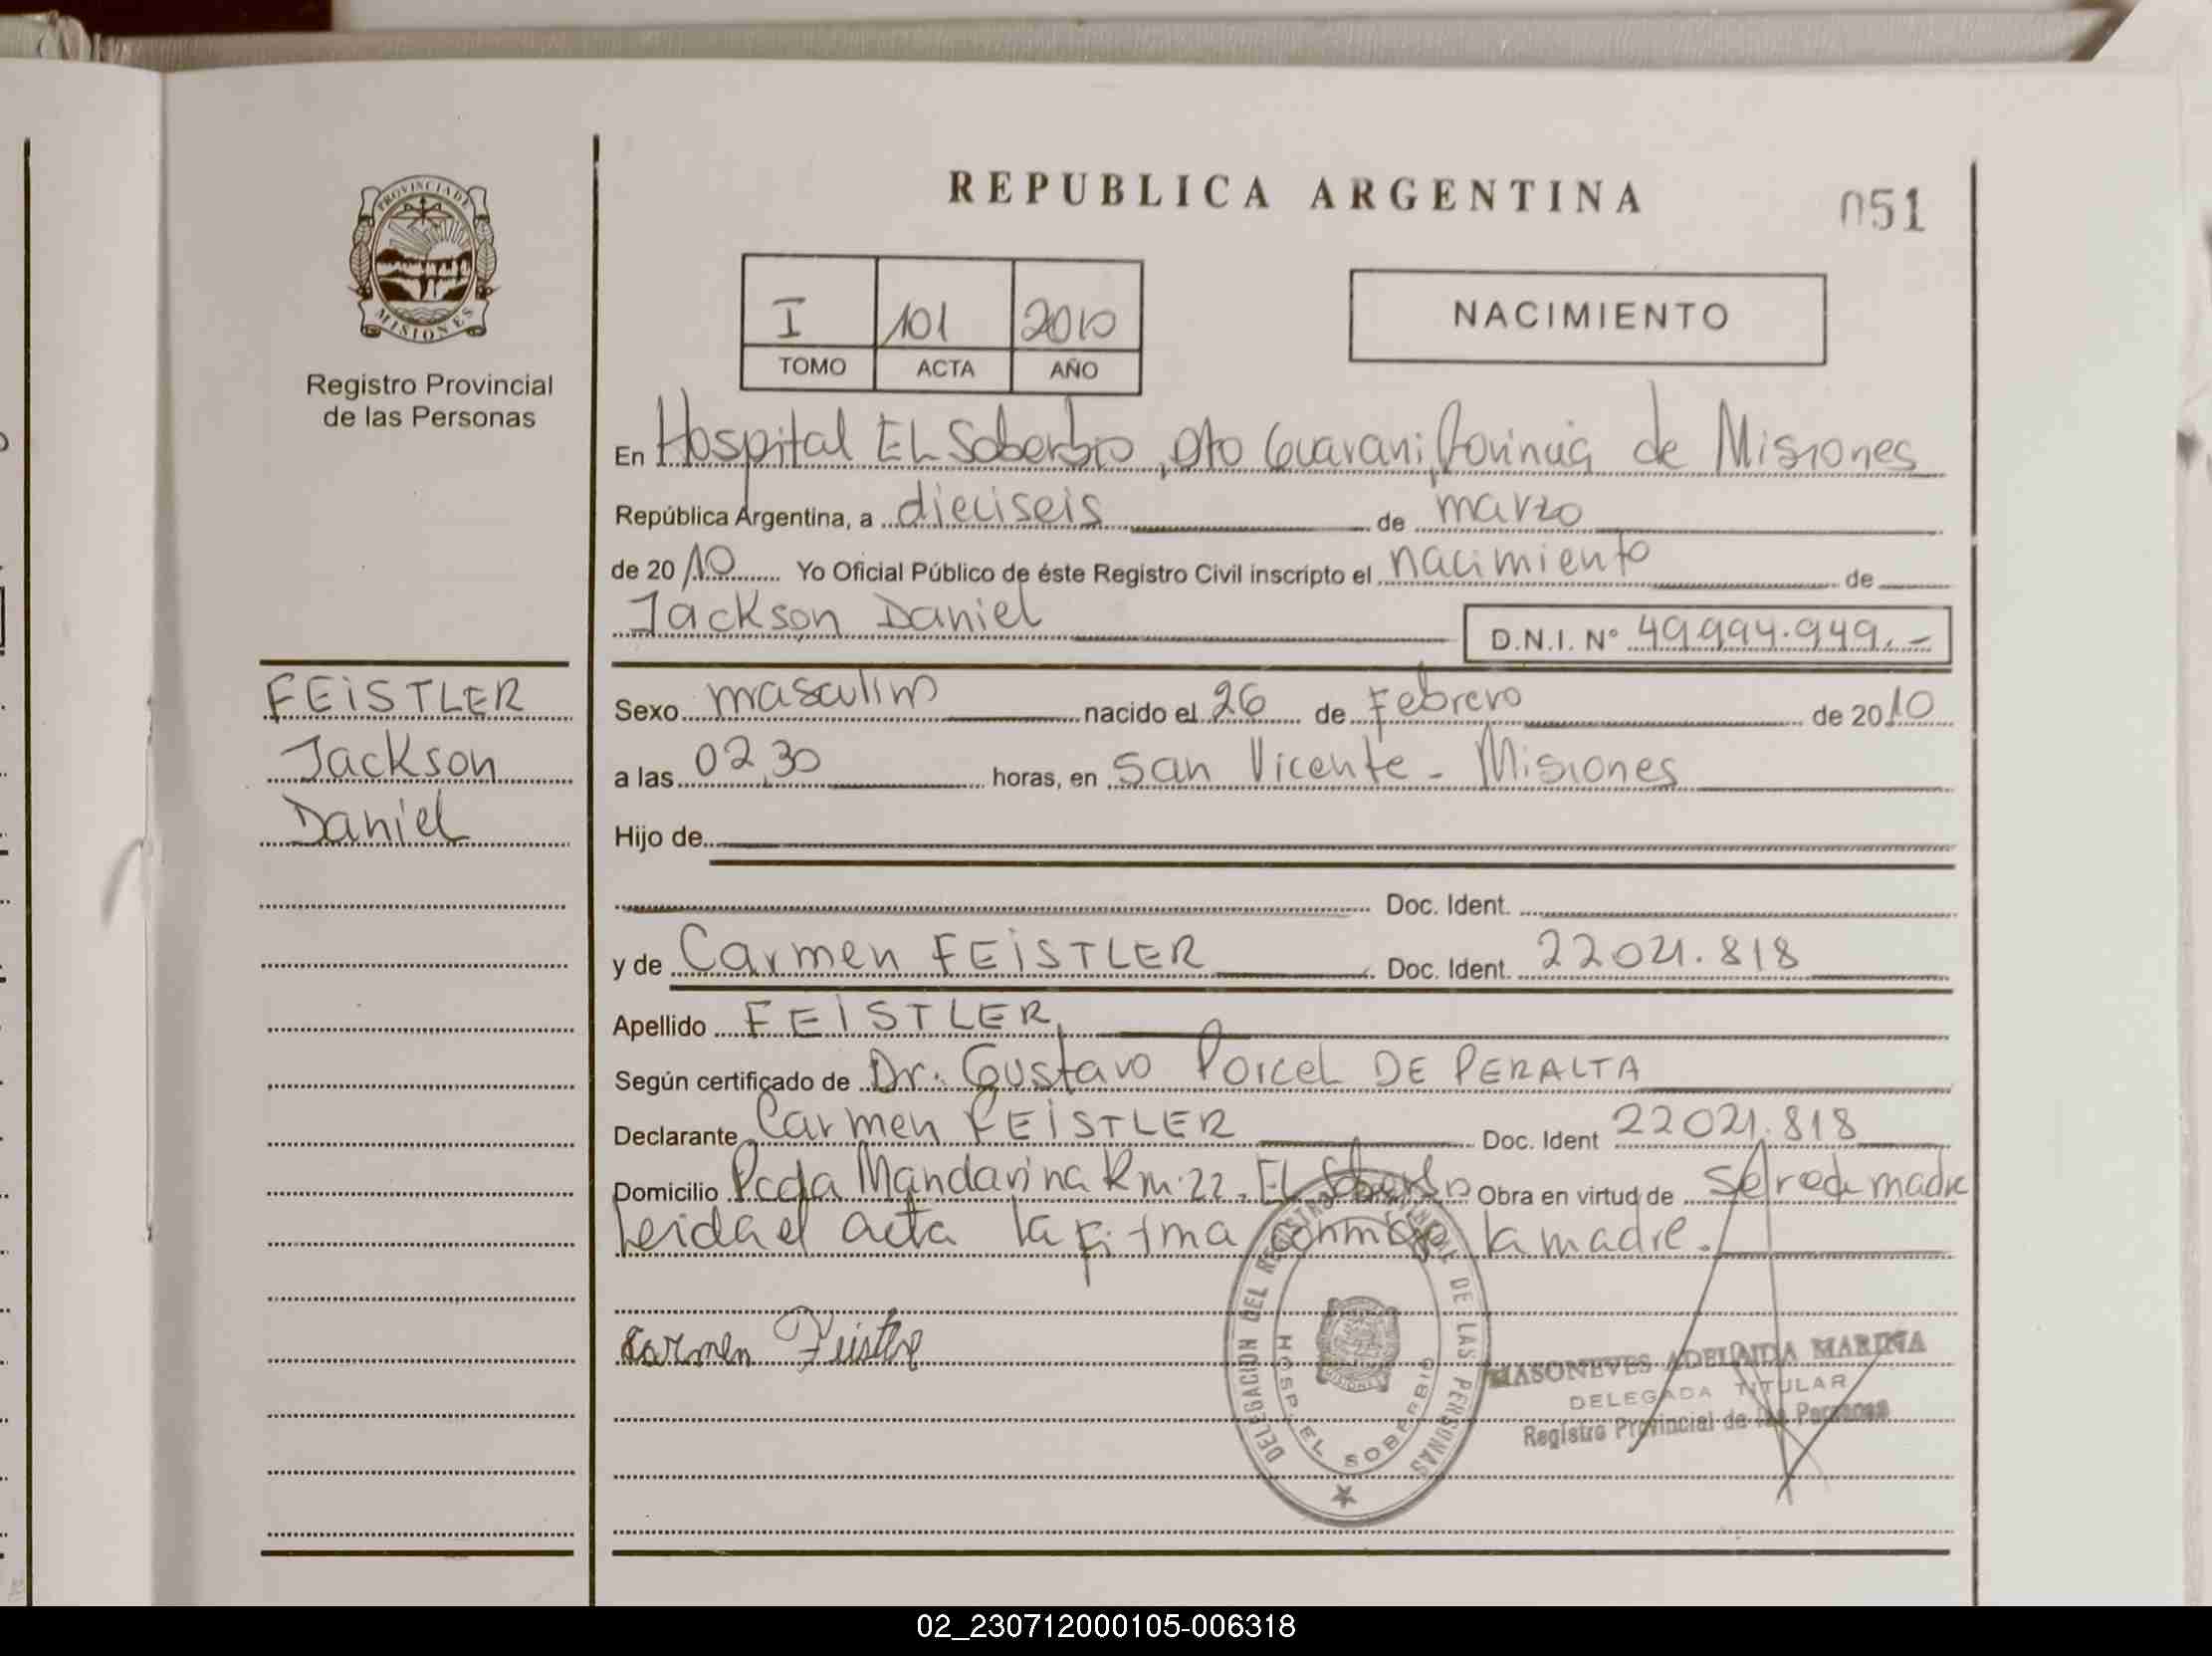 PROVINCIA DE
MISIONES
Registro Provincial
de las Personas
FEISTLER
Jackson
Daniel
REPUBLICA ARGENTINA
051
I 101 2010
TOMO ACTA AÑO
NACIMIENTO
En Hospital EL Soberbio, Dto Guarani, Provincia de Misiones
República Argentina, a dieciseis de marzo
de 2010 Yo Oficial Público de éste Registro Civil inscripto el nacimiento de
Jackson Daniel D.N.I. Nº 49.994.949.-
Sexo masculino nacido el 26 de Febrero de 2010
a las 02,30 horas, en San Vicente - Misiones
Hijo de
Doc. Ident.
y de Carmen FEISTLER Doc. Ident. 22021.818
Apellido FEISTLER
Según certificado de Dr. Gustavo Porcel DE PERALTA
Declarante Carmen FEISTLER Doc. Ident 22021.818
Domicilio Pcda Mandarina Km 22. EL Soberbio Obra en virtud de ser madre
Leida el acta la firma conmigo la madre.
Carmen Feistler
DELEGACION DEL REGISTRO PROVINCIAL DE LAS PERSONAS
HOSP. EL SOBERBIO
MASONEVES ADELAIDA MARINA
DELEGADA TITULAR
Registro Provincial de las Personas
02_230712000105-006318